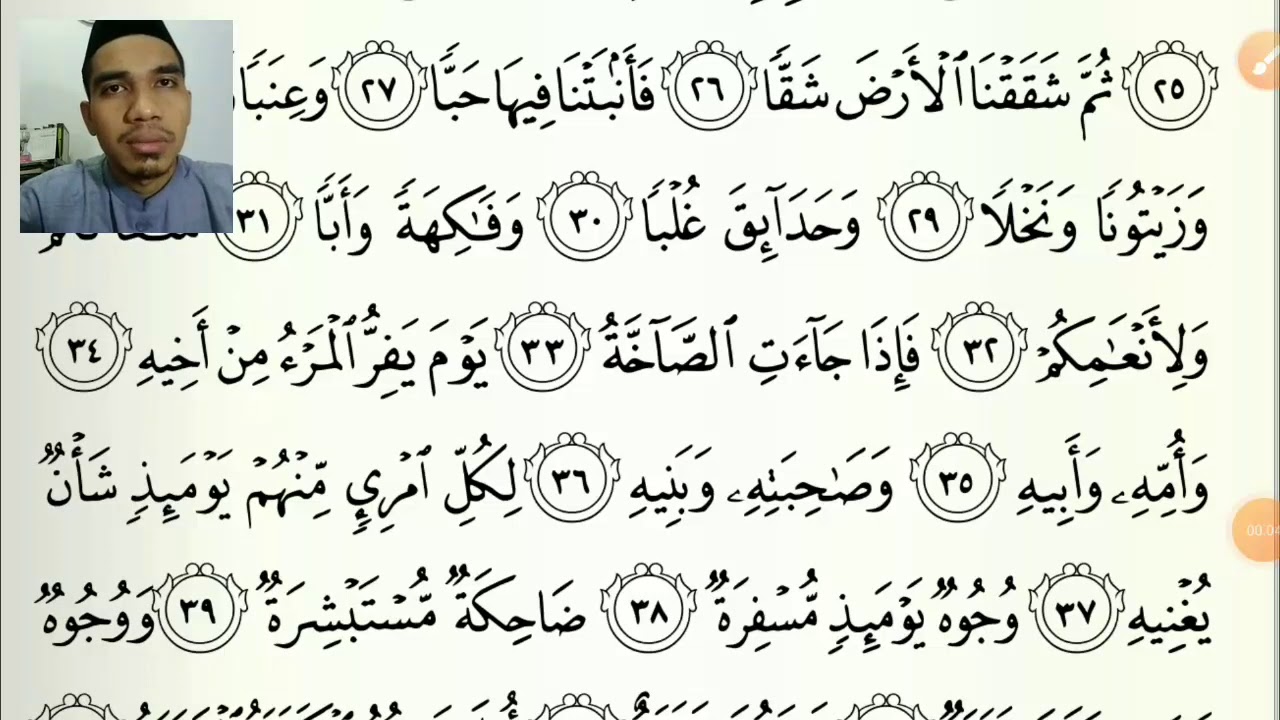 ٢٥ ثُمَّ شَقَقْنَا ٱلْأَرْضَ شَقًّا ٢٦ فَأَنۢبَتْنَا فِيهَا حَبًّا ٢٧ وَعِنَبًا
وَزَيْتُونًا وَنَخْلًا ٢٩ وَحَدَآئِقَ غُلْبًا ٣٠ وَفَٰكِهَةً وَأَبًّا ٣١
وَلِأَنْعَٰمِكُمْ ٣٢ فَإِذَا جَآءَتِ ٱلصَّآخَّةُ ٣٣ يَوْمَ يَفِرُّ ٱلْمَرْءُ مِنْ أَخِيهِ ٣٤
وَأُمِّهِۦ وَأَبِيهِ ٣٥ وَصَٰحِبَتِهِۦ وَبَنِيهِ ٣٦ لِكُلِّ ٱمْرِئٍ مِّنْهُمْ يَوْمَئِذٍ شَأْنٌ
يُغْنِيهِ ٣٧ وُجُوهٌ يَوْمَئِذٍ مُّسْفِرَةٌ ٣٨ ضَاحِكَةٌ مُّسْتَبْشِرَةٌ ٣٩ وَوُجُوهٌ